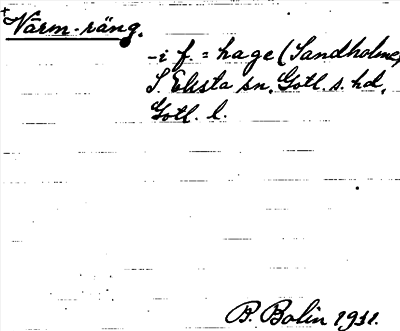 +
Värm-räng.
-i f. = hage (Sandholme)
S. Elista sn, Gotl. s. hd,
Gotl. l.
B. Bolin 1931.